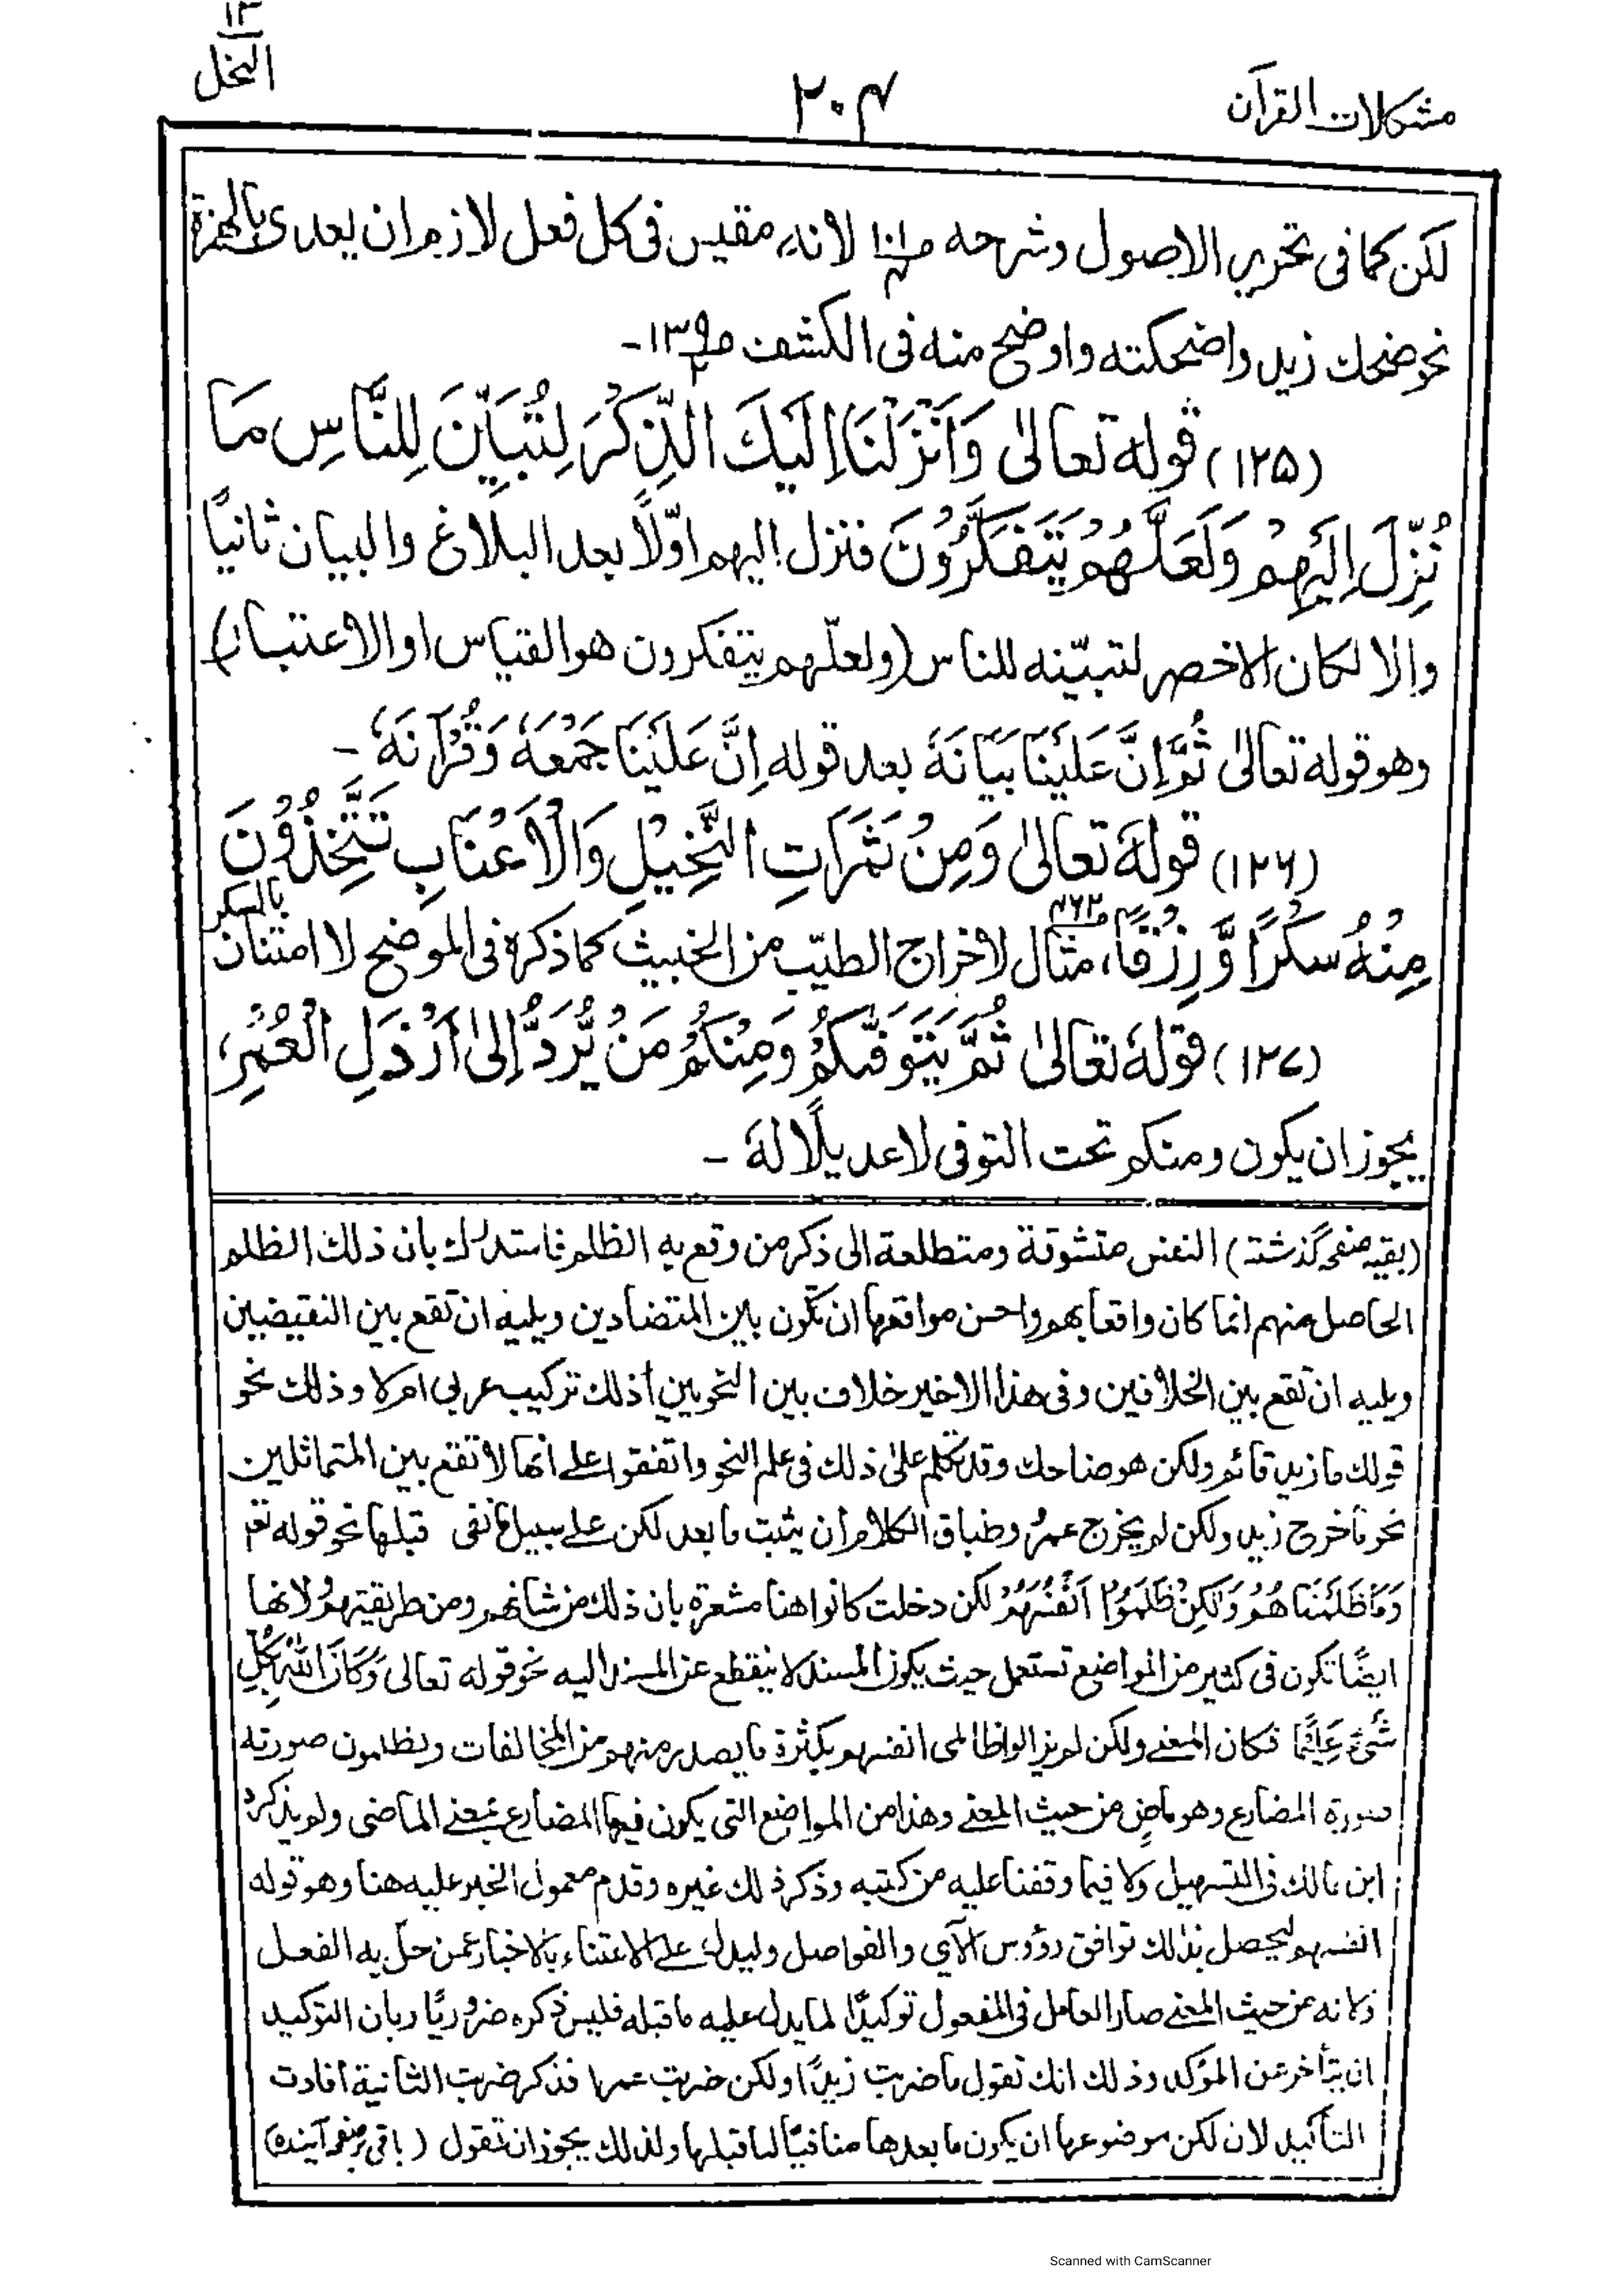 مشكلات القرآن
٢٠٤
١٣
النحل
لكن كما فى تحرير الاصول وشرحه لانه مقيس فى كل فعل لازم ان يعدى بالهمزة
نحو ضحك زيد واضحكته واوضح منه فى الكشف ص١٣٩ ٢ -
(١٢٥) قوله تعالىٰ وَاَنْزَلْنَا اِلَيْكَ الذِّكْرَ لِتُبَيِّنَ لِلنَّاسِ مَا
نُزِّلَ اِلَيْهِمْ وَلَعَلَّهُمْ يَتَفَكَّرُوْنَ فنزل اليهم اوّلًا بعد البلاغ والبيان ثانيًا
والا لكان الاخصر لتبيّنه للناس (ولعلّهم يتفكرون هو القياس او الاعتبار)
وهو قوله تعالىٰ ثُمَّ اِنَّ عَلَيْنَا بَيَانَهٗ بعد قوله اِنَّ عَلَيْنَا جَمْعَهٗ وَقُرْآنَهٗ -
(١٢٦) قولهٗ تعالىٰ وَمِنْ ثَمَرَاتِ النَّخِيْلِ وَالْاَعْنَابِ تَتَّخِذُوْنَ
مِنْهُ سَكَرًا وَّرِزْقًا، مثال لاخراج الطيّب من الخبيث كما ذكره فى الموضح لا امتنان بالسكر
(١٢٧) قولهٗ تعالىٰ ثُمَّ يَتَوَفّٰىكُمْ وَمِنْكُمْ مَنْ يُّرَدُّ اِلىٰ اَرْذَلِ الْعُمُرِ،
يجوز ان يكون ومنكم تحت التوفى لا عديلًا لهٗ -
(بقيه صفحه گذشته) النفس متشوقة ومتطلعة الى ذكر من وقع به الظلم فاستدرك بان ذلك الظلم
الحاصل منهم انما كان واقعا بهم واحسن مواقعها ان تكون بين المتضادين ويليه ان تقع بين النقيضين
ويليه ان تقع بين الخلافين وفى هذا الاخير خلاف بين النحويين أذلك تركيب عربى ام لا وذلك نحو
قولك ما زيد قائم ولكن هو ضاحك وقد تكلم علىٰ ذلك فى علم النحو واتفقوا على انها لا تقع بين المتماثلين
نحو ما خرج زيد ولكن لم يخرج عمرو وطباق الكلام ان يثبت ما بعد لكن على سبيل ما نفى قبلها نحو قوله تعم
وَمَا ظَلَمْنَاهُمْ وَلٰكِنْ ظَلَمُوْا اَنْفُسَهُمْ لكن دخلت كانوا هنا مشعرة بان ذلك من شانهم ومن طريقتهم ولانها
ايضًا تكون فى كثير من المواضع تستعمل حيث يكون المسند لا ينقطع عن المسند اليه نحو قوله تعالى وَكَانَ اللّٰهُ بِكُلِّ
شَيْءٍ عَلِيْمًا فكان المعنى ولكن لم يزالوا ظالمى انفسهم بكثرة ما يصدر منهم من المخالفات ويظلمون صورته
صورة المضارع وهو ماضٍ من حيث المعنى وهذا من المواضع التى يكون فيها المضارع بمعنى الماضى ولم يذكره
ابن مالك فى التسهيل ولا فيما وقفنا عليه من كتبه وذكر ذلك غيره وقدم معمول الخبر عليه هنا وهو قوله
انفسهم ليحصل بذلك توافق رؤوس الآي والفواصل وليدل على الاعتناء بالاخبار عمن حلّ به الفعل
ولانه من حيث المعنى صار العامل فى المفعول توكيدًا لما يدل عليه ما قبله فليس ذكره ضروريًا وبان التوكيد
ان يتأخر عن المؤكد وذلك انك تقول ما ضربت زيدًا ولكن ضربت عمرا فذكر ضربت الثانية افادت
التأكيد لان لكن موضوعها ان يكون ما بعدها منافيًا لما قبلها ولذلك يجوز ان تقول (باقى بر صفحه آينده)
Scanned with CamScanner